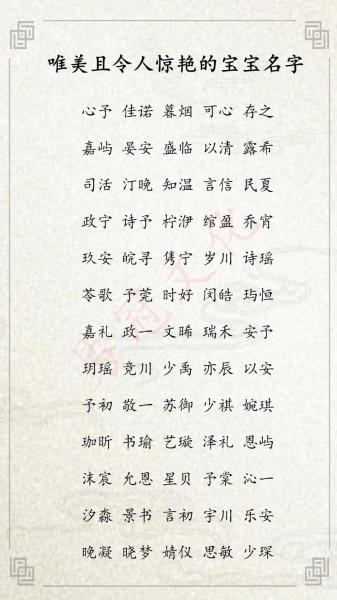 唯美且令人惊艳的宝宝名字
心予 佳诺 暮烟 可心 存之
嘉屿 晏安 盛临 以清 露希
司活 汀晚 知温 言信 民夏
政宁 诗予 柠伊 绾盈 乔宵
玖安 皖寻 隽宁 岁川 诗瑶
苓歌 予莞 时好 闵皓 玙恒
嘉礼 政一 文晞 瑞禾 安予
玥瑶 竞川 少禹 亦辰 以安
予初 敬一 苏御 少祺 婉琪
珈昕 书瑜 艺璇 泽礼 恩屿
沫宸 允恩 星贝 予棠 沁一
汐淼 景书 言初 宇川 乐安
晚凝 晓梦 婧仪 思敏 少琛